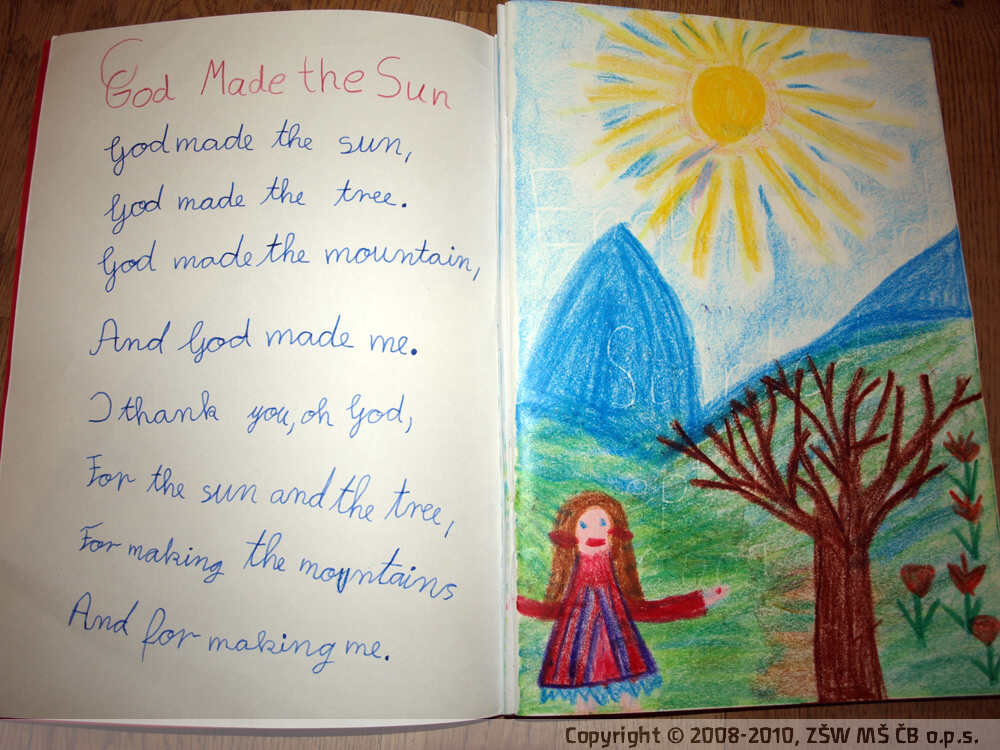 God Made the Sun
God made the sun,
God made the tree.
God made the mountain,
And God made me.
I thank you, oh God,
For the sun and the tree,
For making the mountains
And for making me.
Copyright © 2008-2010, ZŠW MŠ ČB o.p.s.